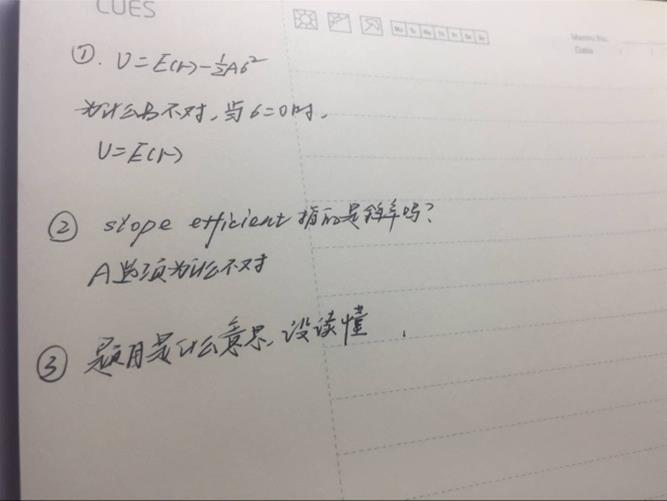 CUES
Mo Tu We Th Fr Sa Su
Memo No.
Date
①. U=E(r)-½Aσ²
为什么B不对,当σ=0时,
U=E(r)
② slope efficient 指的是斜率吗?
A选项为什么不对
③ 题目是什么意思,没读懂.